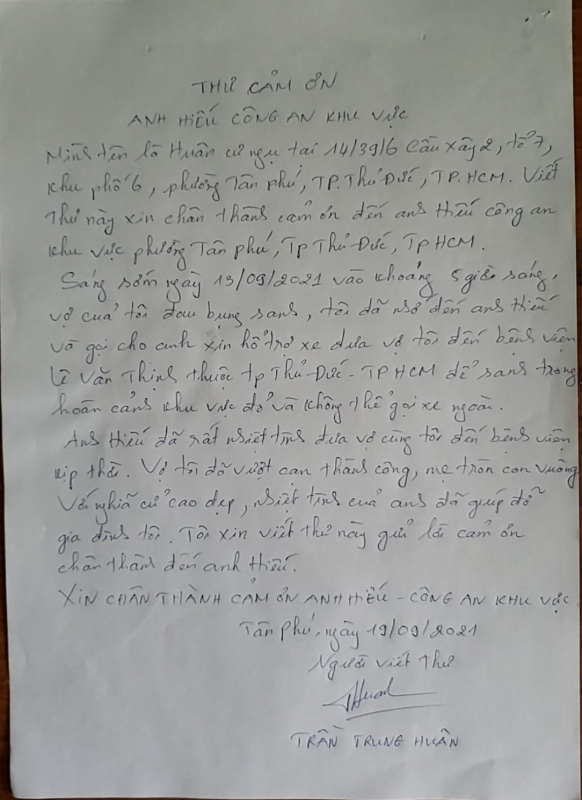 THƯ CẢM ƠN
ANH HIẾU CÔNG AN KHU VỰC
Mình tên là Huân cư ngụ tại 14/39/6 Cầu Xây 2, tổ 7,
khu phố 6, phường Tân phú, TP. Thủ Đức, TP. HCM. Viết
Thư này xin chân thành cảm ơn đến anh Hiếu công an
khu vực phường Tân phú, Tp Thủ Đức, Tp HCM.
Sáng sớm ngày 13/09/2021 vào khoảng 5 giờ sáng,
vợ của tôi đau bụng sanh, tôi đã nhớ đến anh Hiếu
và gọi cho anh xin hổ trợ xe đưa vợ tôi đến bệnh viện
Lê Văn Thịnh thuộc tp Thủ Đức - TP HCM để sanh trong
hoàn cảnh khu vực đỏ và không thể gọi xe ngoài.
Anh Hiếu đã rất nhiệt tình đưa vợ cùng tôi đến bệnh viện
kịp thời. Vợ tôi đã vượt cạn thành công, mẹ tròn con vuông
Với nghĩa cử cao đẹp, nhiệt tình của anh đã giúp đỡ
gia đình tôi. Tôi xin viết thư này gửi lời cảm ơn
chân thành đến anh Hiếu.
XIN CHÂN THÀNH CẢM ƠN ANH HIẾU - CÔNG AN KHU VỰC
Tân Phú, ngày 19/09/2021
Người viết thư
THuan
TRẦN TRUNG HUÂN